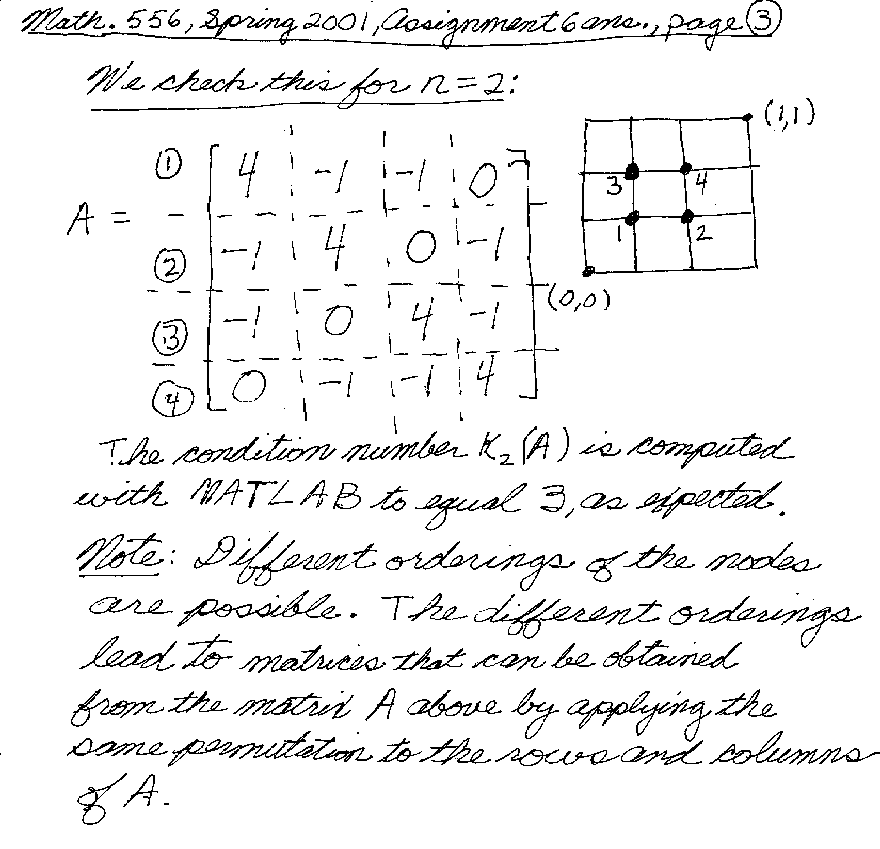 Math. 556, Spring 2001, Assignment 6 ans., page ③
We check this for n = 2:
(1,1)
① 4 -1 -1 0
3 4
A =
② -1 4 0 -1
1 2
(0,0)
③ -1 0 4 -1
④ 0 -1 -1 4
The condition number K₂(A) is computed
with MATLAB to equal 3, as expected.
Note: Different orderings of the nodes
are possible. The different orderings
lead to matrices that can be obtained
from the matrix A above by applying the
same permutation to the rows and columns
of A.